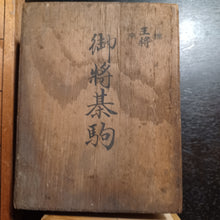 王将
御將棊駒